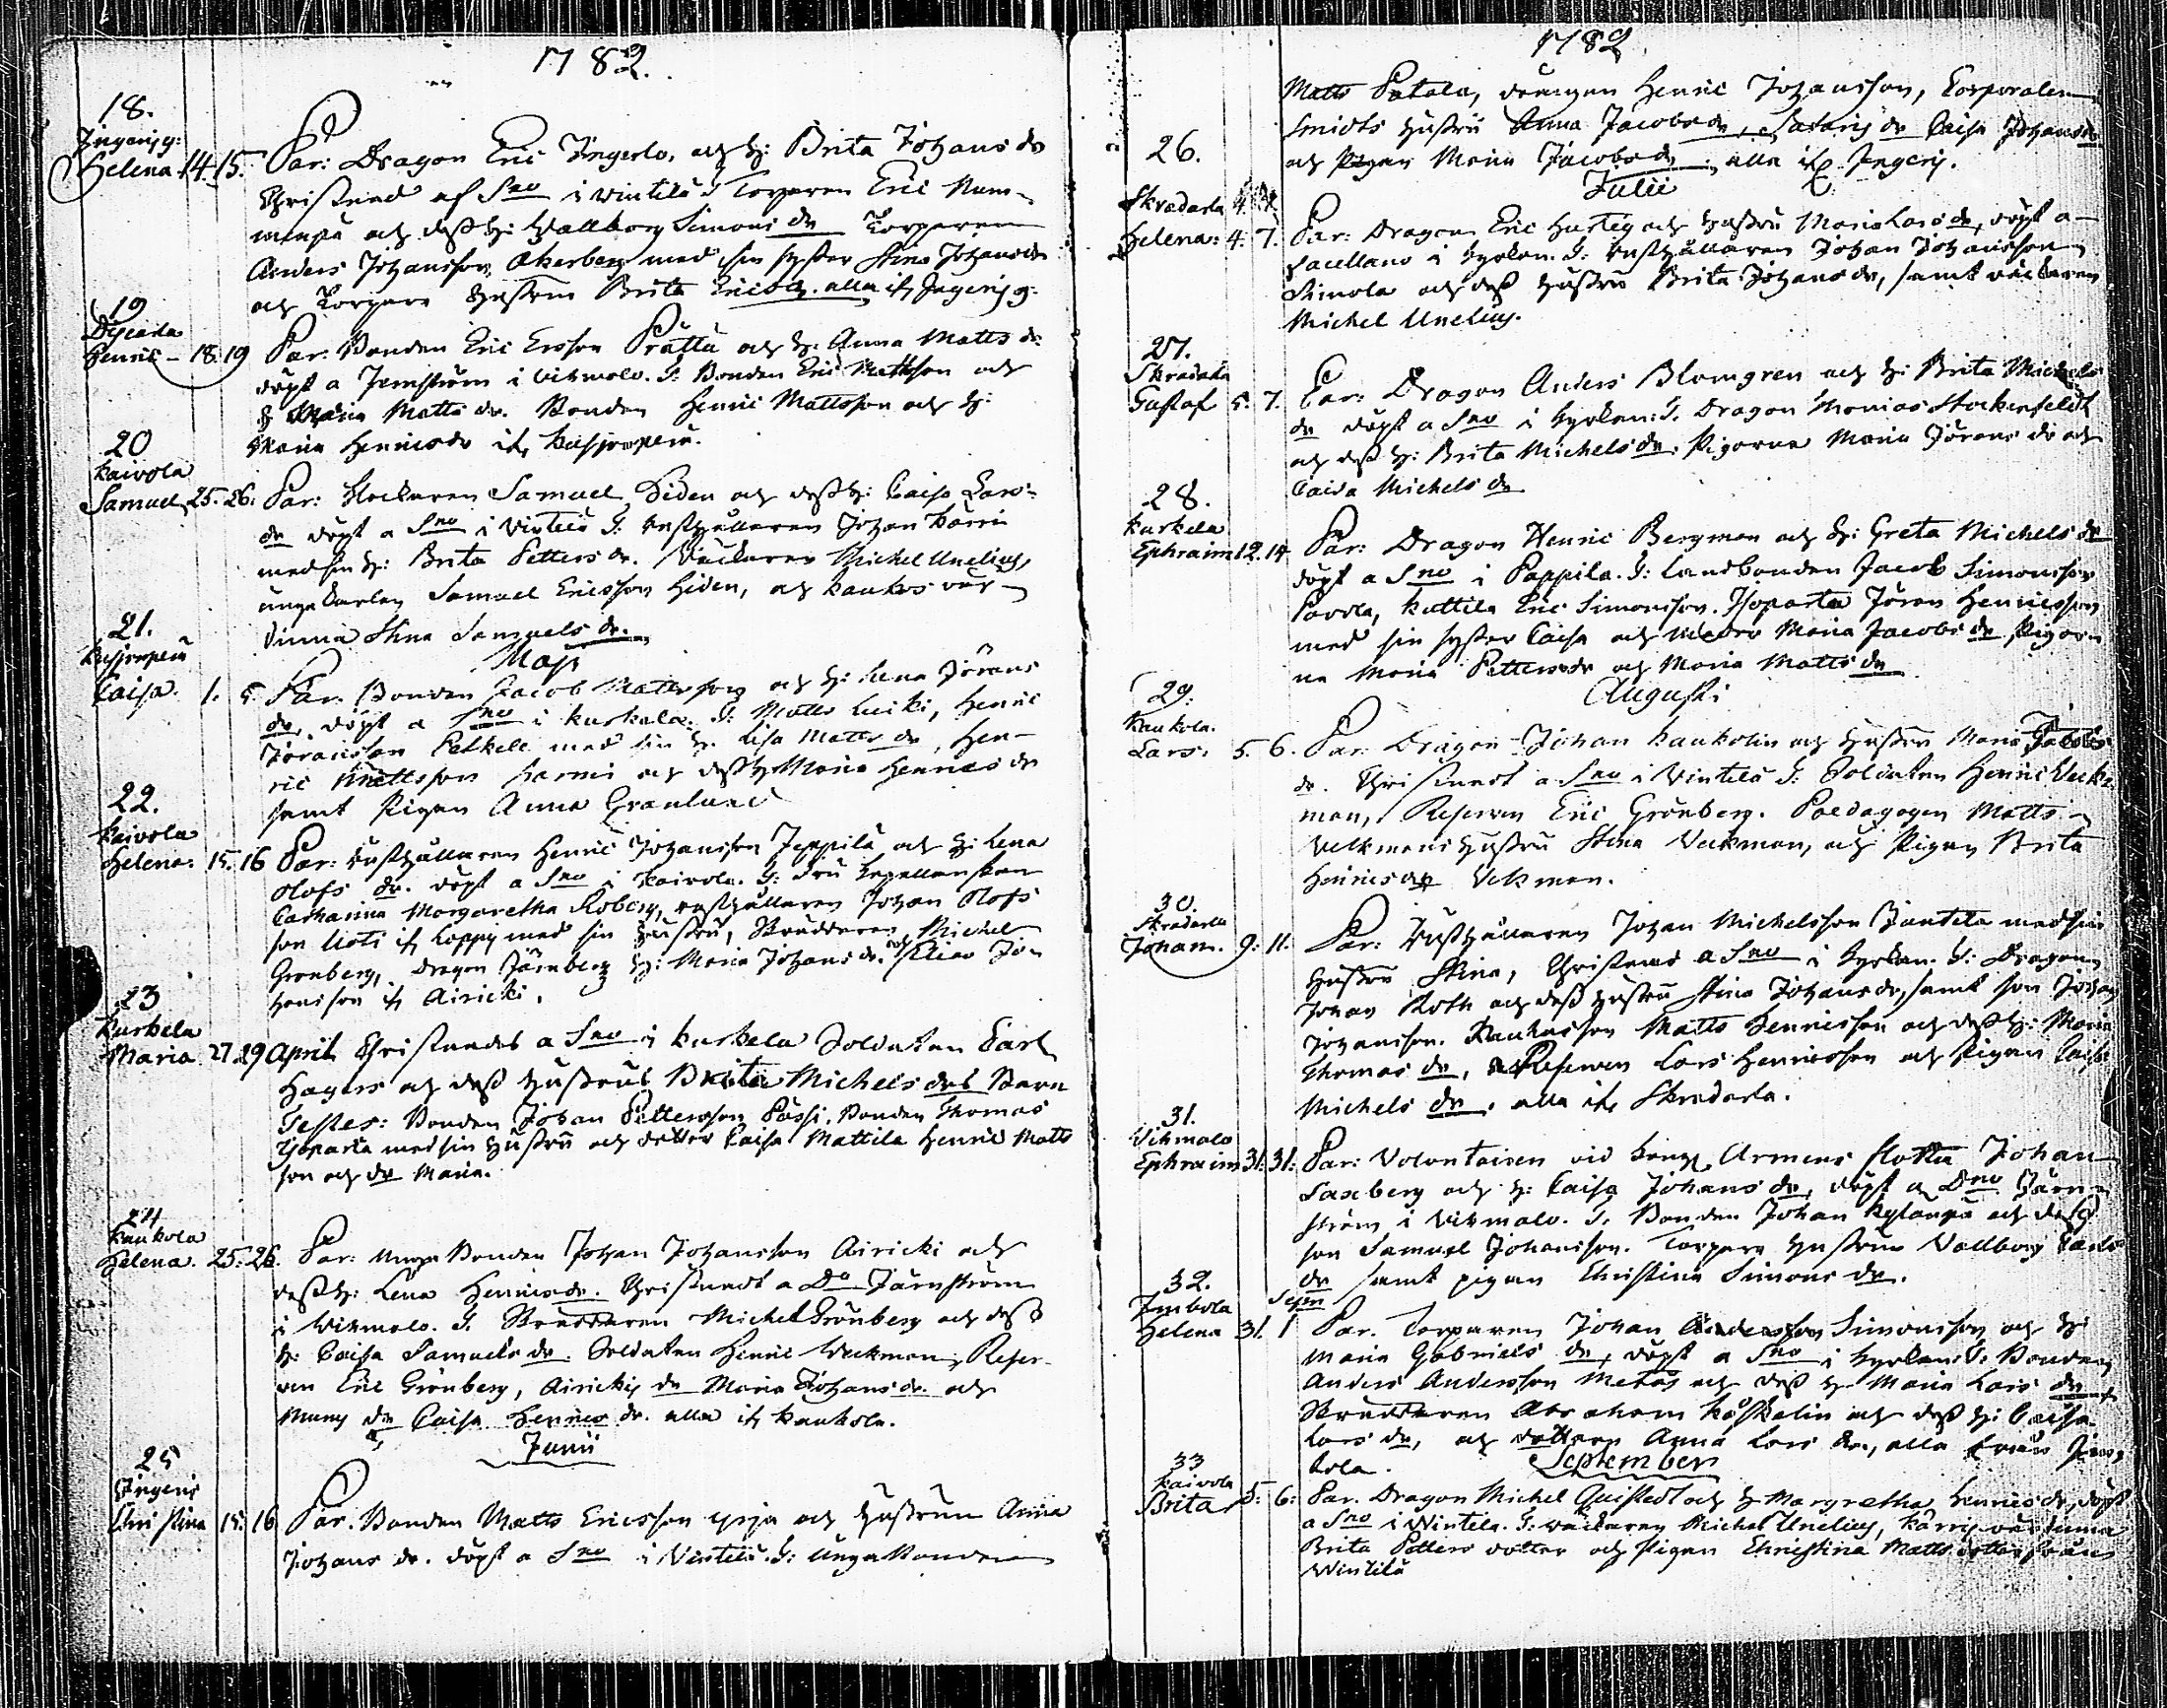 1782.
18.
Ingerisg:
Helena 14. 15. Par: Dragon Eric Ingerlo, och H: Brita Johans dr
Christnad af Sno i Vintilä T Torparen Eric Num-
och dess H: Wallborg Simons dr Torparen
Anders Johansson Åkerberg med sin syster Stina Johans dr
och Torpare Hustrun Brita Erics dr. alla if. Ingerisg.
19
Henric - 18. 19 Par: Bonden Eric Ersson Prättä och H: Anna Matts dr
döpt a Jernström i Vihmalo. T: Bonden Eric Mattsson och
H Maria Matts dr. Bonden Henric Mattsson och H:
Maria Henrics dr if.
20
Kaivola
Samuel 25. 26. Par: Klockaren Samuel Hiden och dess H: Caisa Lars
dr döpt a Sno i Vintilä T: Rusthållaren Johan Kärri
med sin H: Brita Petters dr. Väckaren Michel Unelius,
unga Karlen Samuel Ericsson Hiden, och Kaukos vär-
dinna Stina Samuels dr.
Maji
21.
Caisa. 1. 5. Par. Bonden Jacob Mattsson och H: Lena Jörans
dr, döpt a Sno i Kurkela. T: Matts Luiki, Henric
Jöransson Pelkele med sin H. Lisa Matts dr, Hen-
ric Mattsson Harmi och dess H Maria Henrics dr
samt Pigan Anna Granlund
22.
Kaivola
Helena. 15. 16 Par: Rusthållaren Henric Johansson Jeppilä och H: Lena
Olofs dr. döpt a Sno i Kaivola. T: Fru Kapellanskan
Catharina Margaretha Roberg, rusthållaren Johan Olofs
son Uoti if Loppis med sin Hustru, Skräddaren Michel
Grönberg, Dragon Järnberg H: Maria Johans dr. och Elias Jo-
hansson if Airicki.
23
Kurkela
Maria 27. 29 April Christnades a Sno i Kurkela Soldaten Carl
Hagers och dess Hustrus Brita Michels drs Barn
Testes: Bonden Johan Pettersson Pässi, Bonden Thomas
Isoparta med sin Hustru och dotter Caisa Mattila Henric Matts
son och dr Maria.
24
Kaukola
Helena. 25. 26. Par: unga Bonden Johan Johansson Airicki och
dess H: Lena Henrics dr. Christnadt a Do Järnström
i Vihmalo. T. Skräddaren Michel Grönberg och dess
H: Caisa Samuels dr. Soldaten Henric Veckman, Refer-
ven Eric Grönberg, Airickis dr Maria Johans dr. och
dr Caisa Henrics dr. alla if Kaukola.
Junii
25
Ingeris
Christina 15. 16 Par. Bonden Matts Ericsson Yrjä och Hustrun Anna
Johans dr. döpt a Sno i Vintilä. T: Unga Bonden
1782.
Matts Patala, drängen Henric Johansson, Corporalen
Smidts Hustru Anna Jacobs dr, dr Caisa Johans dr
och Pigan Maria Jacobs dr, alla if Ingeris.
Julii
26.
Skradarla
Helena: 4. 7. Par: Dragon Eric Hurtig och Hustru Maria Lars dr, döpt a
Sacellano i Kyrkan. T: rusthållaren Johan Johansson
Simola och dess Hustru Brita Johans dr, samt väckaren
Michel Unelius.
27.
Skradarla
Gustaf 5. 7. Par: Dragon Anders Blomgren och H: Brita Michels
dr döpt a Sno i Kyrkan: T. Dragon Monias Stockenfeldt
och dess H: Brita Michels dr. Pigorna Maria Jörans dr och
Caisa Michels dr
28.
Kurkela
Ephraim 12. 14. Par: Dragon Henric Bergman och H: Greta Michels dr
döpt a Sno i Pappila. T: Landbonden Jacob Simonsson
Pavola, Kuttila Eric Simonsson. Isoparta Jöran Henricsson
med sin syster Caisa och Maria Jacobs dr Pigor-
na Maria Petters dr och Maria Matts dr
Augusti
29.
Kaukola.
Lars. 5. 6. Par: Dragon Johan Kaukolin och Hustru Maria Jacobs
dr. Christnadt a Sno i Vintilä T: Soldaten Henric Veck-
man, Referven Eric Grönberg. Paedagogen Matts
Vekmans Hustru Stina Veckman, och Pigan Brita
Henrics dr Vekman.
30.
Skradarla
Joham. 9. 11. Par: Rusthållaren Johan Michelsson Jantela med sin
Hustru Stina, Christnad a Sno i Kyrkan. T: Dragon
Johan Roth och dess Hustru Stina Johans dr, samt son Johan
Johansson. Matts Henricsson och dess H: Maria
Thomas dr, Referven Lars Henricsson och Pigan Caisa
Michels dr, alla if Skradarla.
31.
Vihmalo
Ephraim 31. 31. Par: Volontairen vid Kongl. Armens flotta Johan
Saxberg och H: Caisa Johans dr, döpt a Dno Järn-
ström i Vihmalo. T. Bonden Johan Kylänpä och dess
son Samuel Johansson. Torpare Hustrun Vallborg Carls
dr samt pigan Christina Simons dr.
32. Septr
Imbola
Helena 31. 1 Par. Torparen Johan Andersson Simonsson och H:
Maria Gabriels dr, döpt a Sno i Kyrkan: T: Bonden
Anders Andersson Metås och dess H Maria Lars dr
Skräddaren Abraham Kåskelin och dess H: Caisa
Lars dr, och dottren Anna Lars dr, alla från Im-
bola.
September
33
Kaivola
Brita 5. 6. Par. Dragon Michel Quistedt och H Margretha Henrics dr, döpt
a Sno i Vintilä. T: väckaren Michel Unelius, Kärris värdinna
Brita Petters dotter och Pigan Christina Matts dotter från
Wintilä